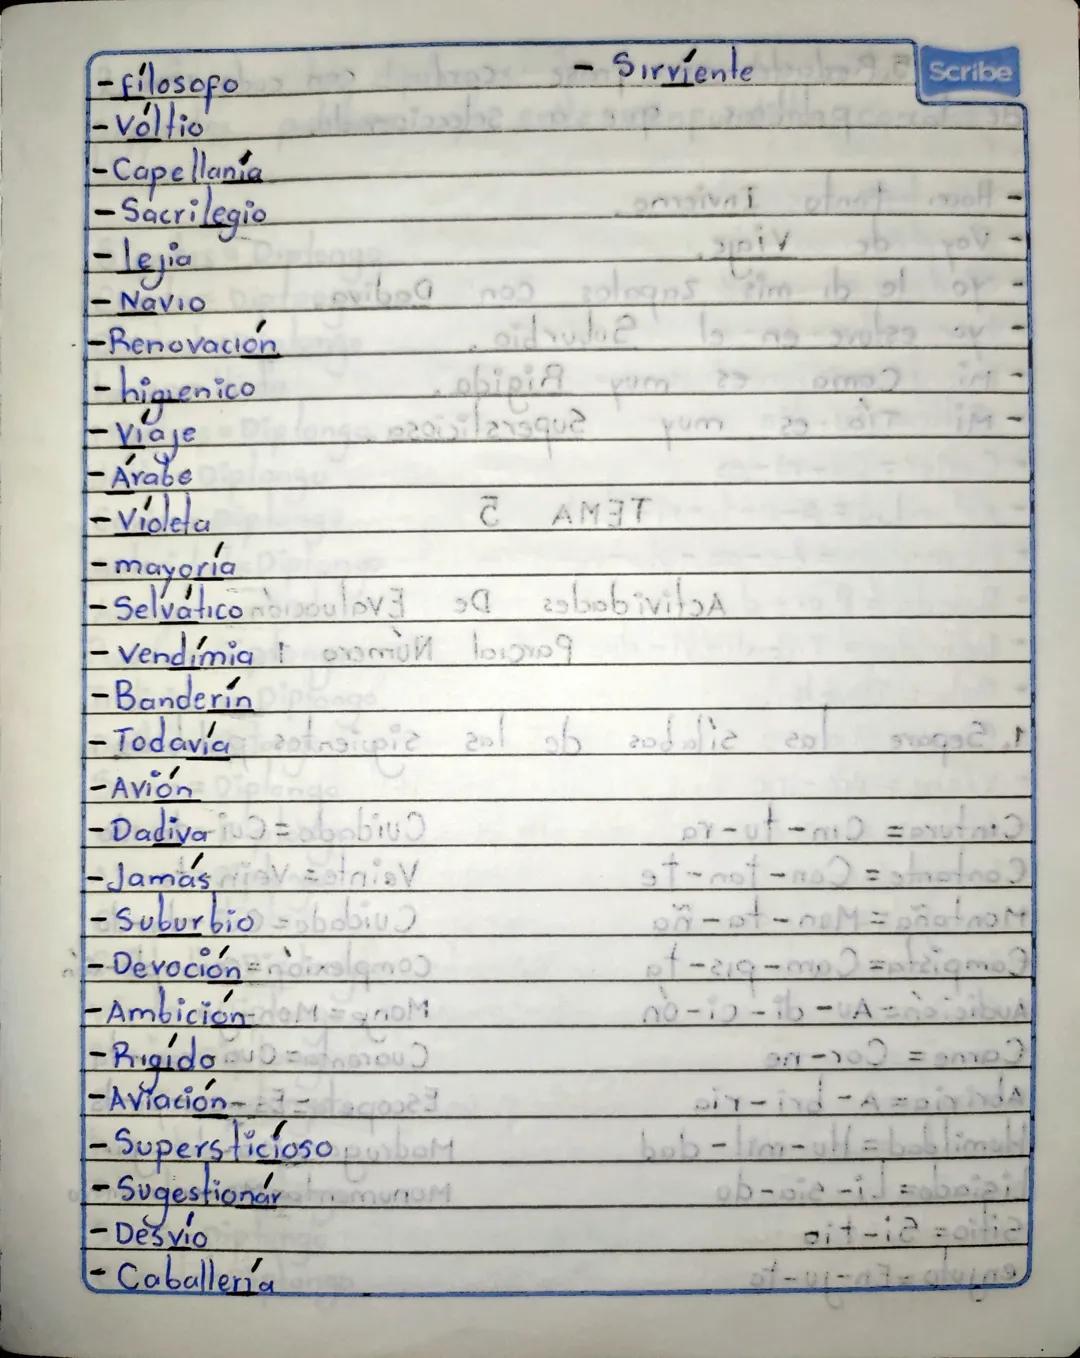 - Fílosofo
- Sirviénte
Scribe
- Vóltio
- Capellanía
- Sacrilegio
- lejia
- Navio
- Renovación
- higienico
- Viáje
- Árabe
- Víoleta
- mayoría
- Selvático
- Vendímia
- Banderín
- Todavía
- Avión
- Dadiva
- Jamás
- Suburbio
- Devoción
- Ambición
- Rigído
- Aviación
- Supersticíoso
- Sugestionár
- Desvío
- Caballería